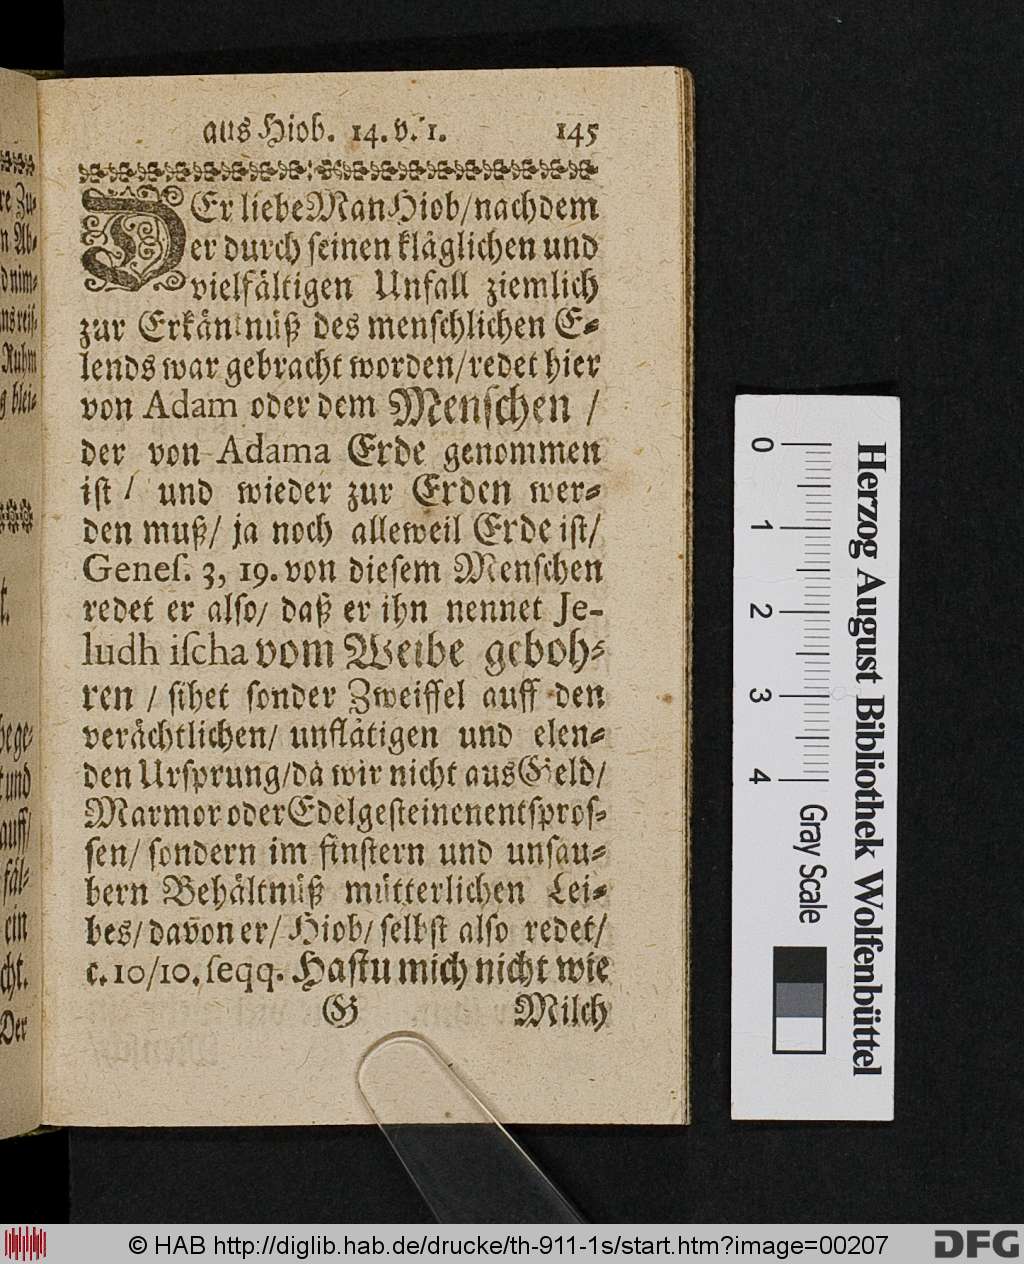 aus Hiob. 14. v. 1. 145
DEr liebe Man Hiob/ nachdem
er durch seinen kläglichen und
vielfältigen Unfall ziemlich
zur Erkäntnüß des menschlichen E-
lends war gebracht worden/ redet hier
von Adam oder dem Menschen /
der von Adama Erde genommen
ist / und wieder zur Erden wer-
den muß/ ja noch alleweil Erde ist/
Genes. 3, 19. von diesem Menschen
redet er also/ daß er ihn nennet Je-
ludh ischa vom Weibe geboh-
ren / sihet sonder Zweiffel auff den
verächtlichen/ unflätigen und elen-
den Ursprung/ da wir nicht aus Geld/
Marmor oder Edelgesteinen entspros-
sen/ sondern im finstern und unsau-
bern Behältnüß mütterlichen Lei-
bes/ davon er/ Hiob/ selbst also redet/
c. 10/10. seqq. Hastu mich nicht wie
G Milch
re Zu-
n Ab-
dnim-
ns reis-
Ruhm
g blei-
t.
bege-
und
auff/
fäl-
ein
cht.
Der
0 1 2 3 4 Gray Scale
Herzog August Bibliothek Wolfenbüttel
© HAB http://diglib.hab.de/drucke/th-911-1s/start.htm?image=00207
DFG